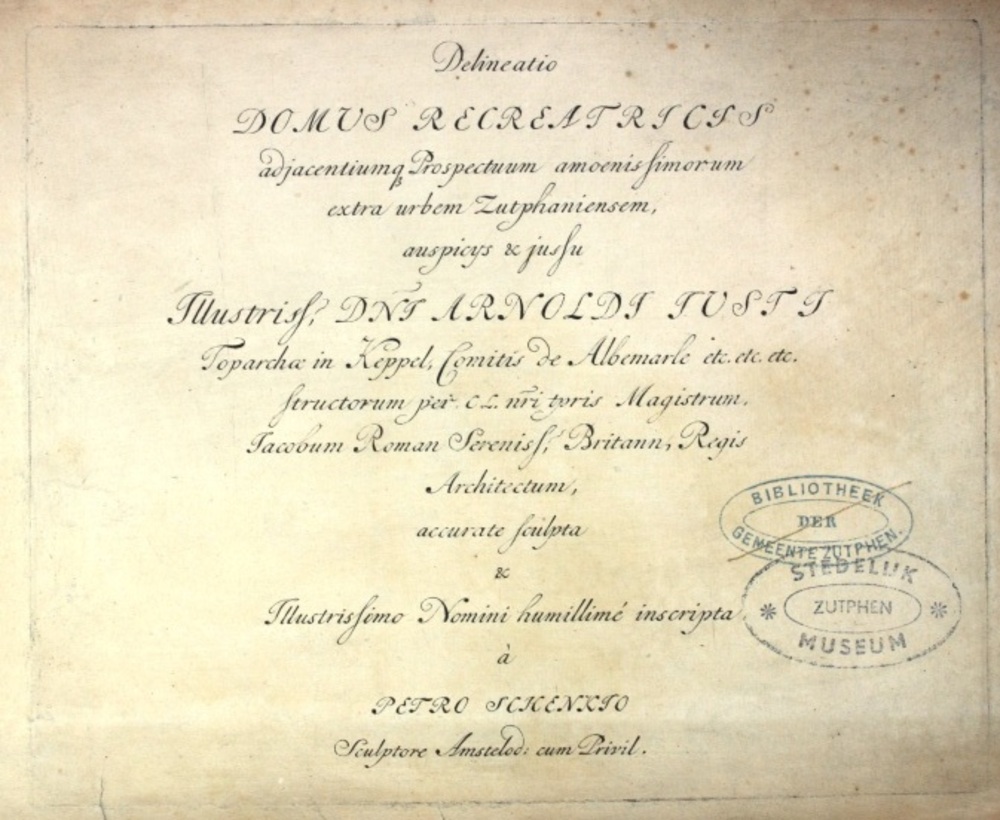 Delineatio
DOMUS RECREATRICIS
adjacentiumqꝫ Prospectuum amoenisſimorum
extra urbem Zutphaniensem,
auspicys & jusſu
Illustrisſ: DNI ARNOLDI IUSTI
Toparchæ in Keppel, Comitis de Albemarle etc. etc. etc.
ſtructorum per C L. nr̃i tpris Magistrum,
Iacobum Roman Serenisſ: Britann, Regis
Architectum,
accurate ſculpta
&
Illustrisſimo Nomini humillimé inscripta
à
PETRO SCHENKIO
Sculptore Amstelod: cum Privil.
BIBLIOTHEEK
DER
GEMEENTE ZUTPHEN.
STEDELIJK
ZUTPHEN
MUSEUM